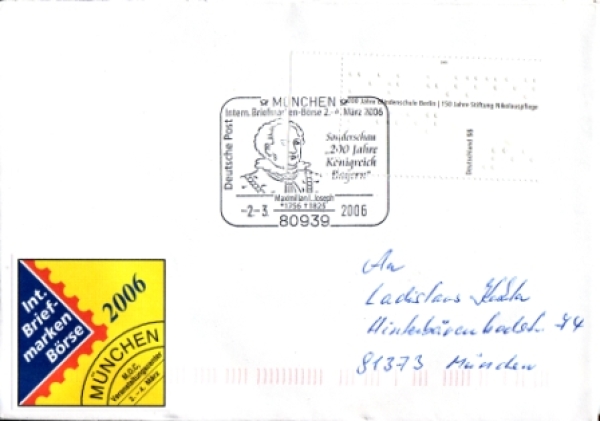 200 Jahre Blindenschule Berlin | 150 Jahre Stiftung Nikolauspflege
Deutschland 55
MÜNCHEN
Intern. Briefmarken-Börse 2.-4. März 2006
Deutsche Post
Sonderschau
„200 Jahre
Königreich
Bayern"
Maximilian I. Joseph
*1756 †1825
-2-3. 2006
80939
An
Ladislaus
81373 München
Int.
Brief-
marken
Börse
2006
MÜNCHEN
M.O.C.
Veranstaltungscenter
2. - 4. März